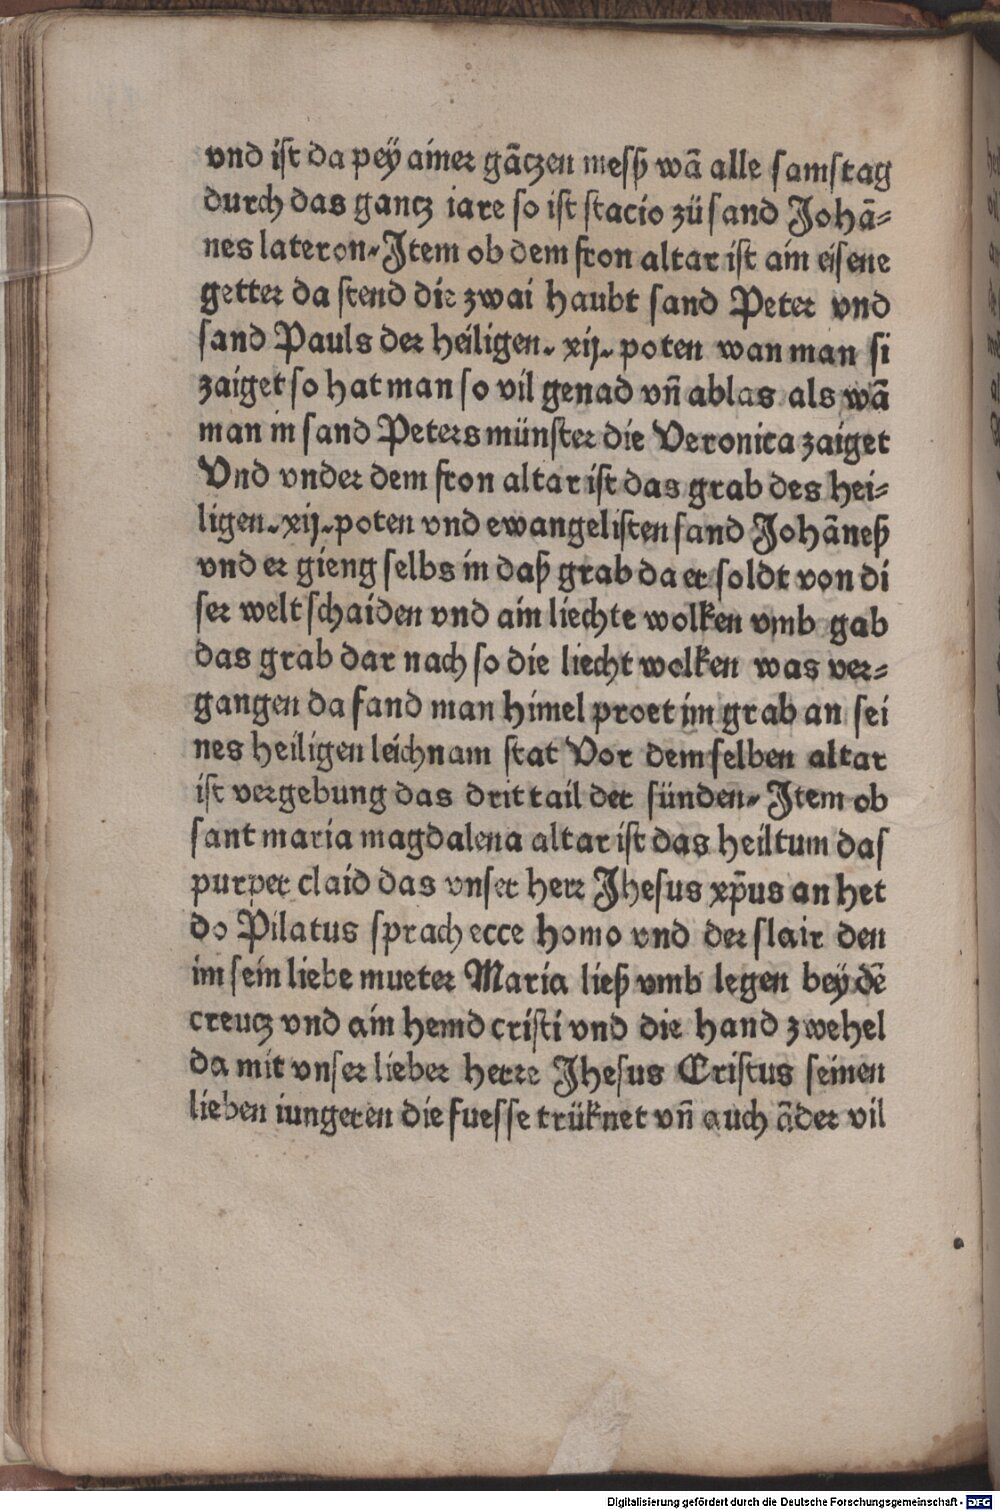 vnd ist da pey ainer gãtzen mesß wã alle samstag
durch das gantz iare so ist stacio zü sand Johã⸗
nes lateron. Item ob dem fron altar ist ain eisene
getter da stend die zwai haubt sand Peter vnd
sand Pauls der heiligen. xij. poten wan man si
zaiget so hat man so vil genad vñ ablas als wã
man in sand Peters münster die Veronica zaiget
Vnd vnder dem fron altar ist das grab des hei⸗
ligen. xij. poten vnd ewangelisten sand Johãneß
vnd er gieng selbs in daß grab da er soldt von di
ser welt schaiden vnd ain liechte wolken vmb gab
das grab dar nach so die liecht wolken was ver⸗
gangen da fand man himel proet im grab an sei
nes heiligen leichnam stat Vor dem selben altar
ist vergebung das drit tail der sünden. Item ob
sant maria magdalena altar ist das heiltum das
purper claid das vnser herr Jhesus xp̃us an het
do Pilatus sprach ecce homo vnd der slair den
im sein liebe mueter Maria ließ vmb legen bey dẽ
creutz vnd ain hemd cristi vnd die hand zwehel
da mit vnser lieber herre Jhesus Cristus seinen
lieben iungeren die fuesse trüknet vñ auch ãder vil
Digitalisierung gefördert durch die Deutsche Forschungsgemeinschaft - DFG